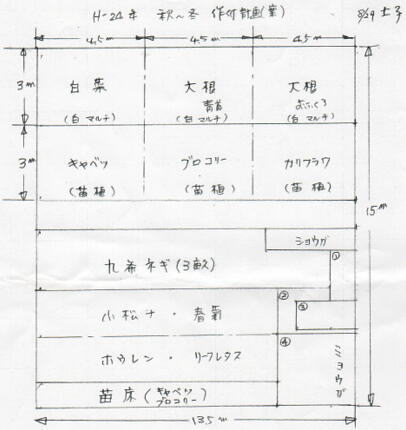 H-24年 秋〜冬 作付計画(案)
8/29
4.5m 4.5m 4.5m
3m
白菜
(白マルチ)
大根
青首
(白マルチ)
大根
おふくろ
(白マルチ)
3m
キャベツ
(苗植)
ブロコリー
(苗植)
カリフラワ
(苗植)
15m
ショウガ
九条ネギ(3畝)
①
小松ナ・春菊
②
③
ホウレン・リーフレタス
④
ミョウガ
苗床(キャベツ
ブロコリー)
13.5m